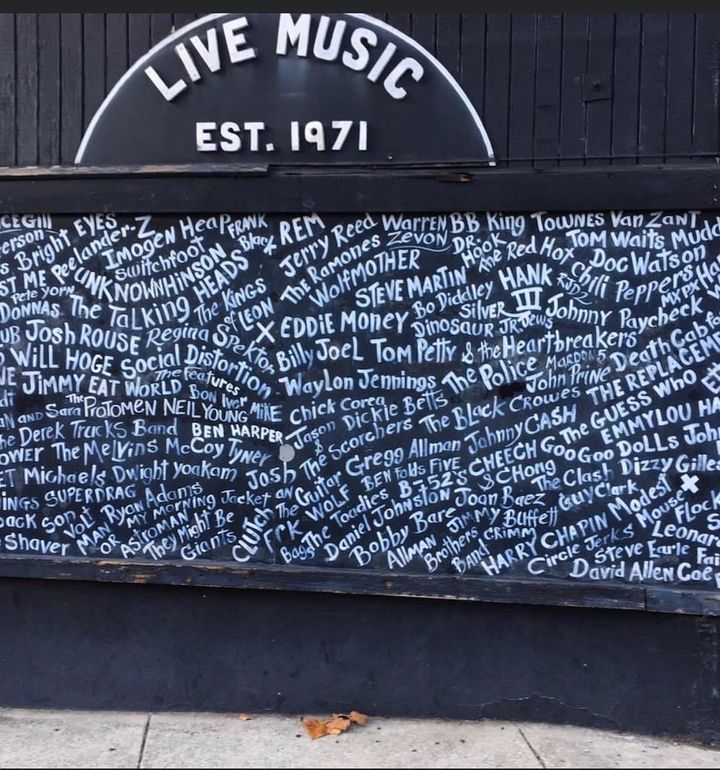 LIVE MUSIC
EST. 1971
CEGill EYES Peelander-Z Imogen Heap FRANK Black REM Jerry Reed Warren Zevon BB King Townes Van Zant
erson s Bright Switchfoot The Ramones DR Hook The Red Hot Chili Peppers TOM WaiTs Mudd
ST ME Pete yorn UNKNOWNHINSON Wolfmother STEVE MARTIN HANK III RJD2 Doc Watson
DONNAS The TaLKing HEADS The KINGS of LEON X EDDIE MONEY Bo Diddley Silver Jews Johnny Paycheck MXPX
UB Josh ROUSE Regina Spektor Billy Joel Tom Petty & the Heartbreakers Dinosaur JR. Death Cab
WILL HOGE Social Distortion Waylon Jennings The Police MaRDONS John Prine THE REPLACEME
VE JIMMY EAT WORLD The features Bon Iver MIKE Chick Corea The Black Crowes The GUESS WHO
AN and Sara The PROTOMEN NEIL YOUNG Jason & The Scorchers Dickie Betts Johnny CASH EMMYLOU HA
he Derek Trucks Band BEN HARPER Gregg Allman CHEECH & CHong GooGoo DOLLS John
OWER The Melvins McCoy Tyner BEN FOLDS FIVE B-52's The Clash Dizzy Gille
ET Michaels Dwight yoakam Josh The Guitar WOLF The Toadies Joan Baez Guy Clark Modest Mouse X
INGS SUPERDRAG Ryan Adams MY MORNING Jacket Daniel Johnston Jimmy Buffett Flock
ack Son VOLT MAN OR ASTROMAN They Might Be Giants CLUTCH Bobby Bare HARRY CHAPIN Circle Jerks Leonar
Shaver ALLMAN Brothers Band GRIMMY Steve Earle Fai
David Allen Coe